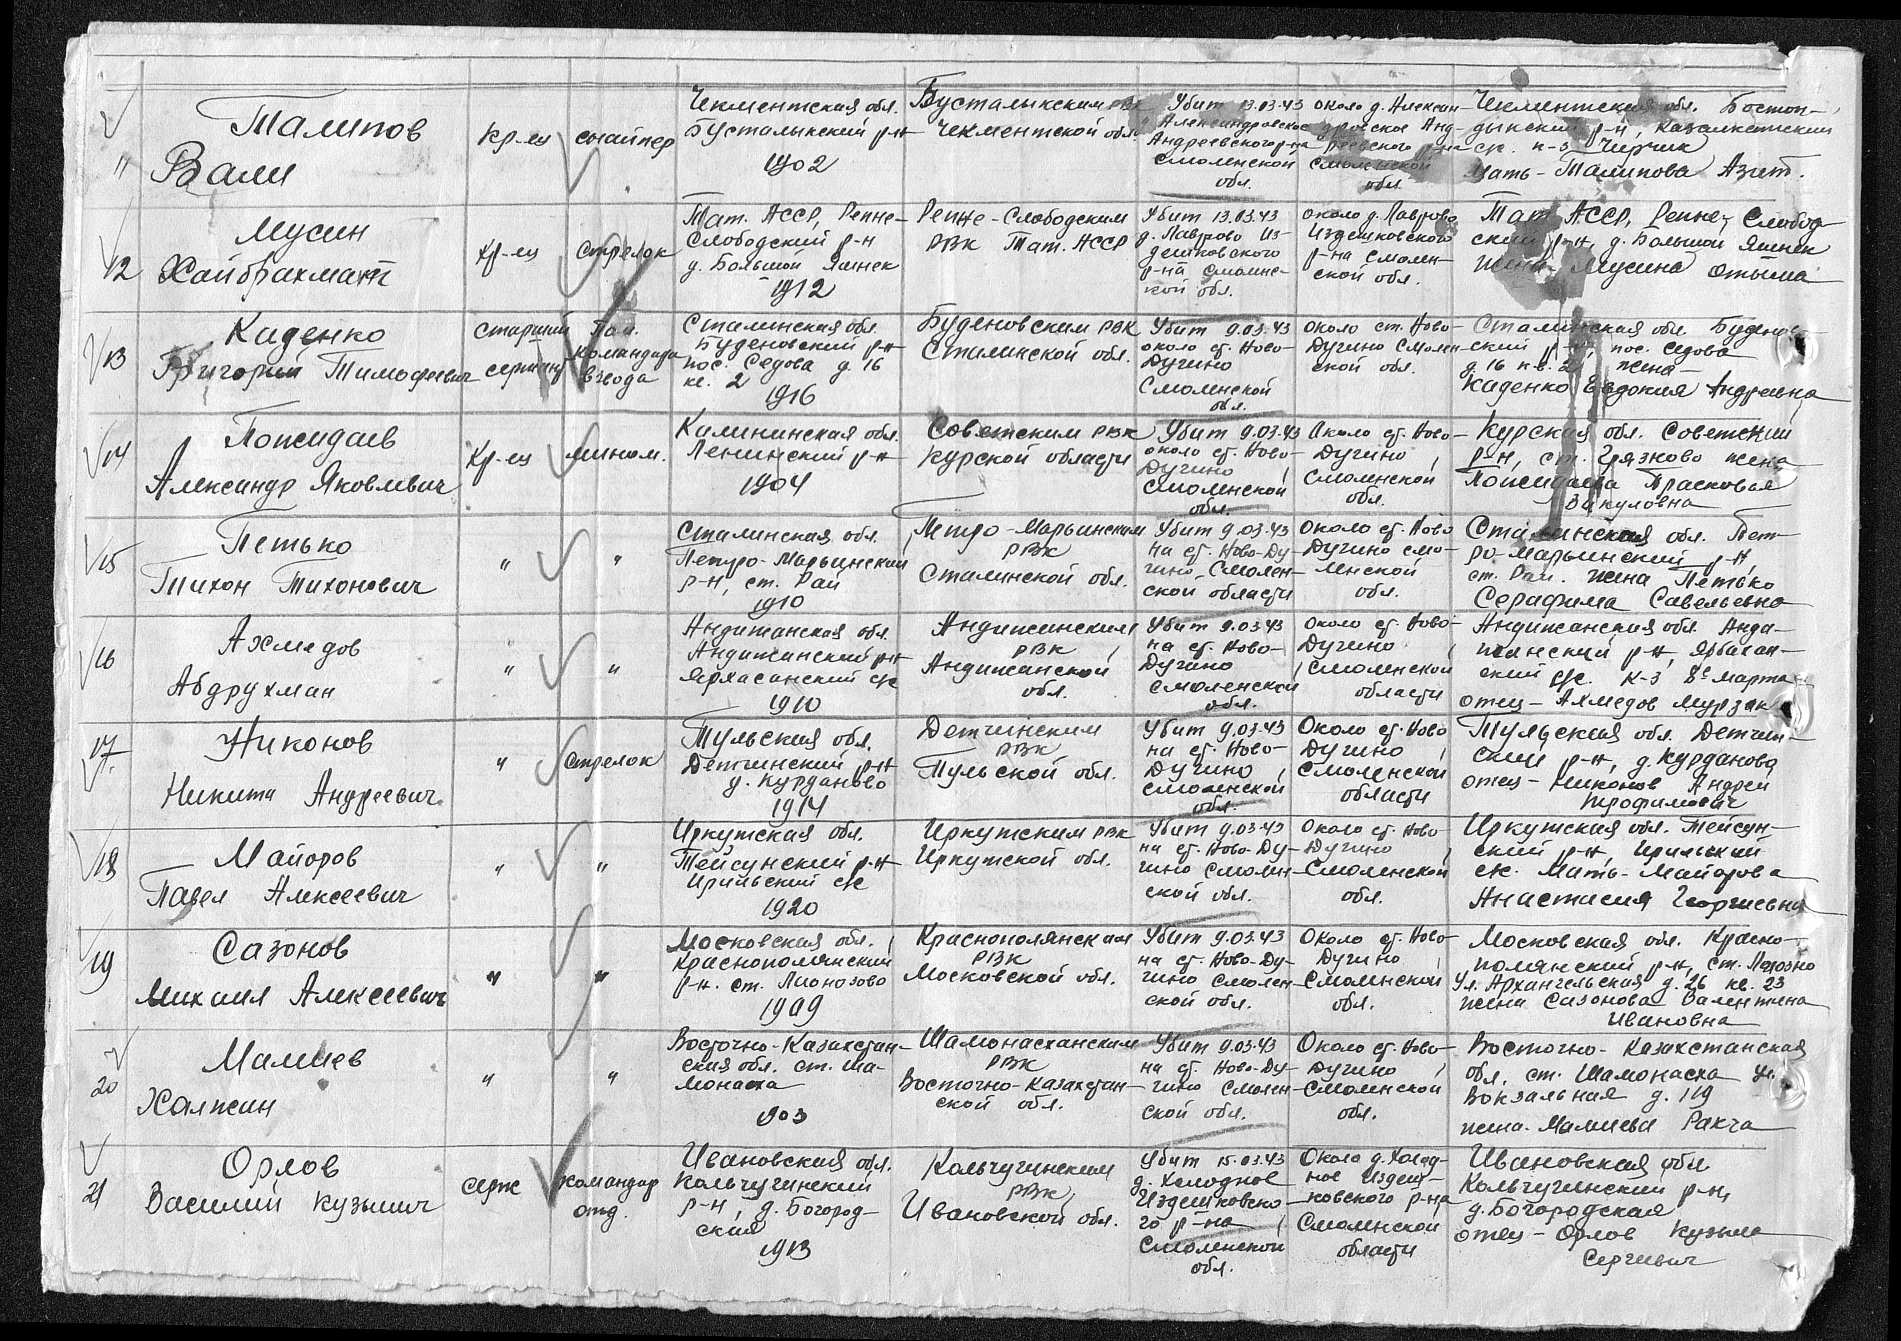 11
Талипов
Вали
кр-ец
снайпер
Чекментская обл.
Бусталыкский р-н
1902
Бусталыкским РВК
Чекментской обл.
Убит 13.03.43
Александровское
Андреевского р-на
Смоленской
обл.
около д. Алексан-
дровское Анд-
реевского р-на
Смоленской
обл.
Чекментская обл. Бостон-
дыкский р-н, Казалкетский
с/с. к-з Чирчик
Мать - Талипова Азит.
12
Мусин
Хайбрахмат
кр-ец
стрелок
Тат. АССР, Репне-
Слободский р-н
д. Большой Яшнек
1912
Репне-Слободским
РВК Тат. АССР
Убит 13.03.43
д. Лаврово Из-
дешковского
р-на Смолен-
кой обл.
около д. Лаврово
Издешковского
р-на Смолен-
ской обл.
Тат. АССР, Репне, Слобод-
ский р-н, д. Большой Яшнек
жена - Мусина Отыма
13
Каденко
Григорий Тимофеевич
старший
сержант
Пом.
командира
взвода
Сталинская обл.
Буденовский р-н
пос. Седова д. 16
кв. 2
1916
Буденовским РВК
Сталинской обл.
Убит 9.03.43
около ст. Ново-
Дугино
Смоленской
обл.
около ст. Ново-
Дугино Смолен-
ской обл.
Сталинская обл. Буденов-
ский р-н, пос. Седова
д. 16 кв. 2, жена -
Каденко Евдокия Андреевна
14
Пожидаев
Александр Яковлевич
кр-ец
мином.
Калининская обл.
Ленинский р-н
1904
Советским РВК
Курской области
Убит 9.03.43
около ст. Ново-
Дугино,
Смоленской
обл.
Около ст. Ново-
Дугино,
Смоленской
обл.
Курская обл. Советский
р-н, ст. Грязново жена
Пожидаева Прасковья
Вакуловна
15
Петько
Тихон Тихонович
"
"
Сталинская обл.
Петро-Марьинский
р-н, ст. Рай
1910
Петро-Марьинским
РВК
Сталинской обл.
Убит 9.03.43
на ст. Ново-Ду-
гино, Смолен-
ской области
Около ст. Ново
Дугино Смо-
ленской
обл.
Сталинская обл. Пет-
ро-Марьинский р-н,
ст. Рай. жена Петько
Серафима Савельевна
16
Ахмедов
Абдрухман
"
"
Андижанская обл.
Андижанский р-н
Ярхасанский с/с
1910
Андижанским
РВК,
Андижанской
обл.
Убит 9.03.43
на ст. Ново-
Дугино
Смоленской
обл.
Около ст. Ново-
Дугино,
Смоленской
области
Андижанская обл. Анди-
жанский р-н, Ярбахан-
ский с/с. к-з 8е Марта
отец - Ахмедов Мурзак
17.
Никонов
Никита Андреевич
"
Стрелок
Тульская обл.
Детчинский р-н
д. Курданово
1914
Детчинским
РВК
Тульской обл.
Убит 9.03.43
на ст. Ново-
Дугино,
Смоленской
обл.
Около ст. Ново
Дугино,
Смоленской
области
Тульская обл. Детчин-
ский р-н, д. Курданова
отец - Никонов Андрей
Трофимович
18
Майоров
Павел Алексеевич
"
"
Иркутская обл.
Тейсунский р-н
Ирильский с/с
1920
Иркутским РВК
Иркутской обл.
Убит 9.03.43
на ст. Ново-Ду-
гино Смолен-
ской обл.
Около ст. Ново-
Дугино,
Смоленской
обл.
Иркутская обл. Тейсун-
ский р-н, Ирильский
с/с. Мать - Майорова
Анастасия Георгиевна
19
Сазонов
Михаил Алексеевич
"
"
Московская обл.,
Краснополянский
р-н. ст. Лионозово
1909
Краснополянским
РВК
Московской обл.
Убит 9.03.43
на ст. Ново-Ду-
гино Смолен-
ской обл.
Около ст. Ново-
Дугино,
Смоленской
обл.
Московская обл. Красно-
полянский р-н, ст.
Ул. Архангельская д. 26 кв. 23
жена Сазонова Валентина
Ивановна
20
Малиев
Халжан
"
"
Восточно-Казахстан-
ская обл. ст. Ша-
монаха
1903
Шамонасханским
РВК
Восточно-Казахстан-
ской обл.
Убит 9.03.43
на ст. Ново-Ду-
гино Смолен-
ской обл.
Около ст. Ново-
Дугино,
Смоленской
обл.
Восточно-Казахстанская
обл. ст. Шамонасха ул.
Вокзальная д. 119
жена - МалиеваРакча
21
Орлов
Василий Кузьмич
серж
командир
отд.
Ивановская обл.
Кольчугинский
р-н, д. Богород-
ския
1913
Кольчугинским
РВК,
Ивановской обл.
Убит 15.03.43
д. Холодное
Издешковско-
го р-на,
Смоленской
обл.
Около д. Холод-
ное Издеш-
ковского р-на
Смоленской
области
Ивановская обл
Кольчугинский р-н,
д. Богородская
отец - Орлов Кузьма
Сергеевич